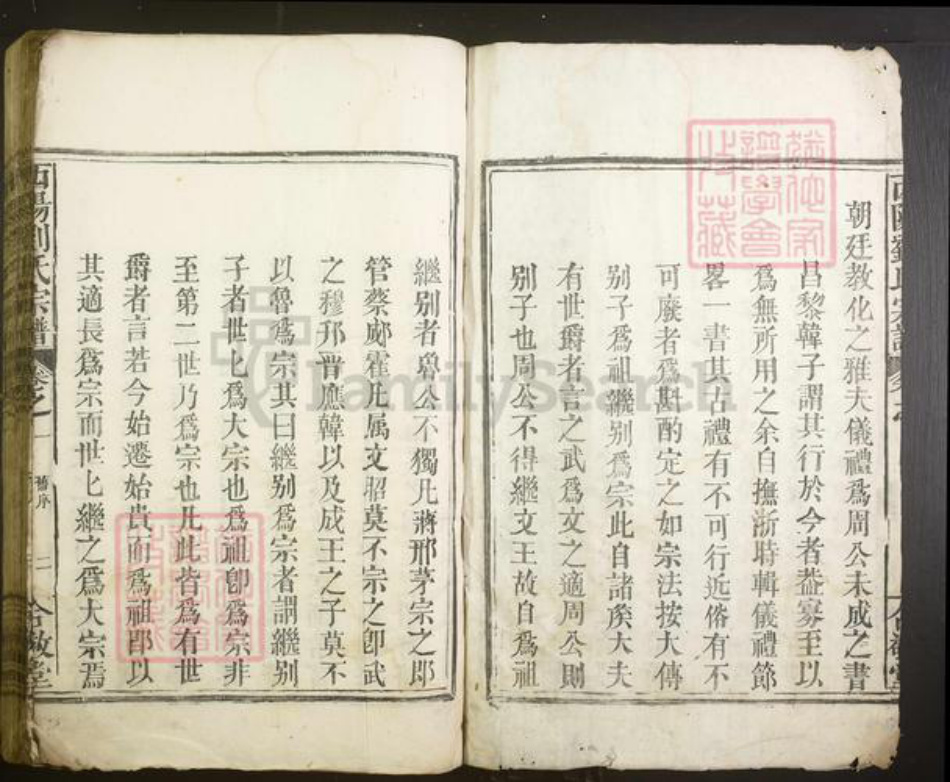 朝廷教化之雅夫儀禮爲周公未成之書
昌黎韓子謂其行於今者葢寡至以
爲無所用之余自撫浙時輯儀禮節
畧一書其古禮有不可行近俗有不
可廢者爲斟酌定之如宗法按大傳
别子爲祖繼别爲宗此自諸矦大夫
有世爵者言之武爲文之適周公則
别子也周公不得繼文王故自爲祖
繼别者魯公不獨凡蔣邢茅宗之卽
管蔡郕霍凡属文昭莫不宗之卽武
之穆邘晋應韓以及成王之子莫不
以魯爲宗其曰繼别爲宗者謂繼别
子者世匕爲大宗也爲祖卽爲宗非
至第二世乃爲宗也凡此皆爲有世
爵者言若今始遷始貴而爲祖卽以
其適長爲宗而世匕繼之爲大宗焉
西陽劉氏宗譜 卷之一 舊序 二 合敬堂
FamilySearch
收藏